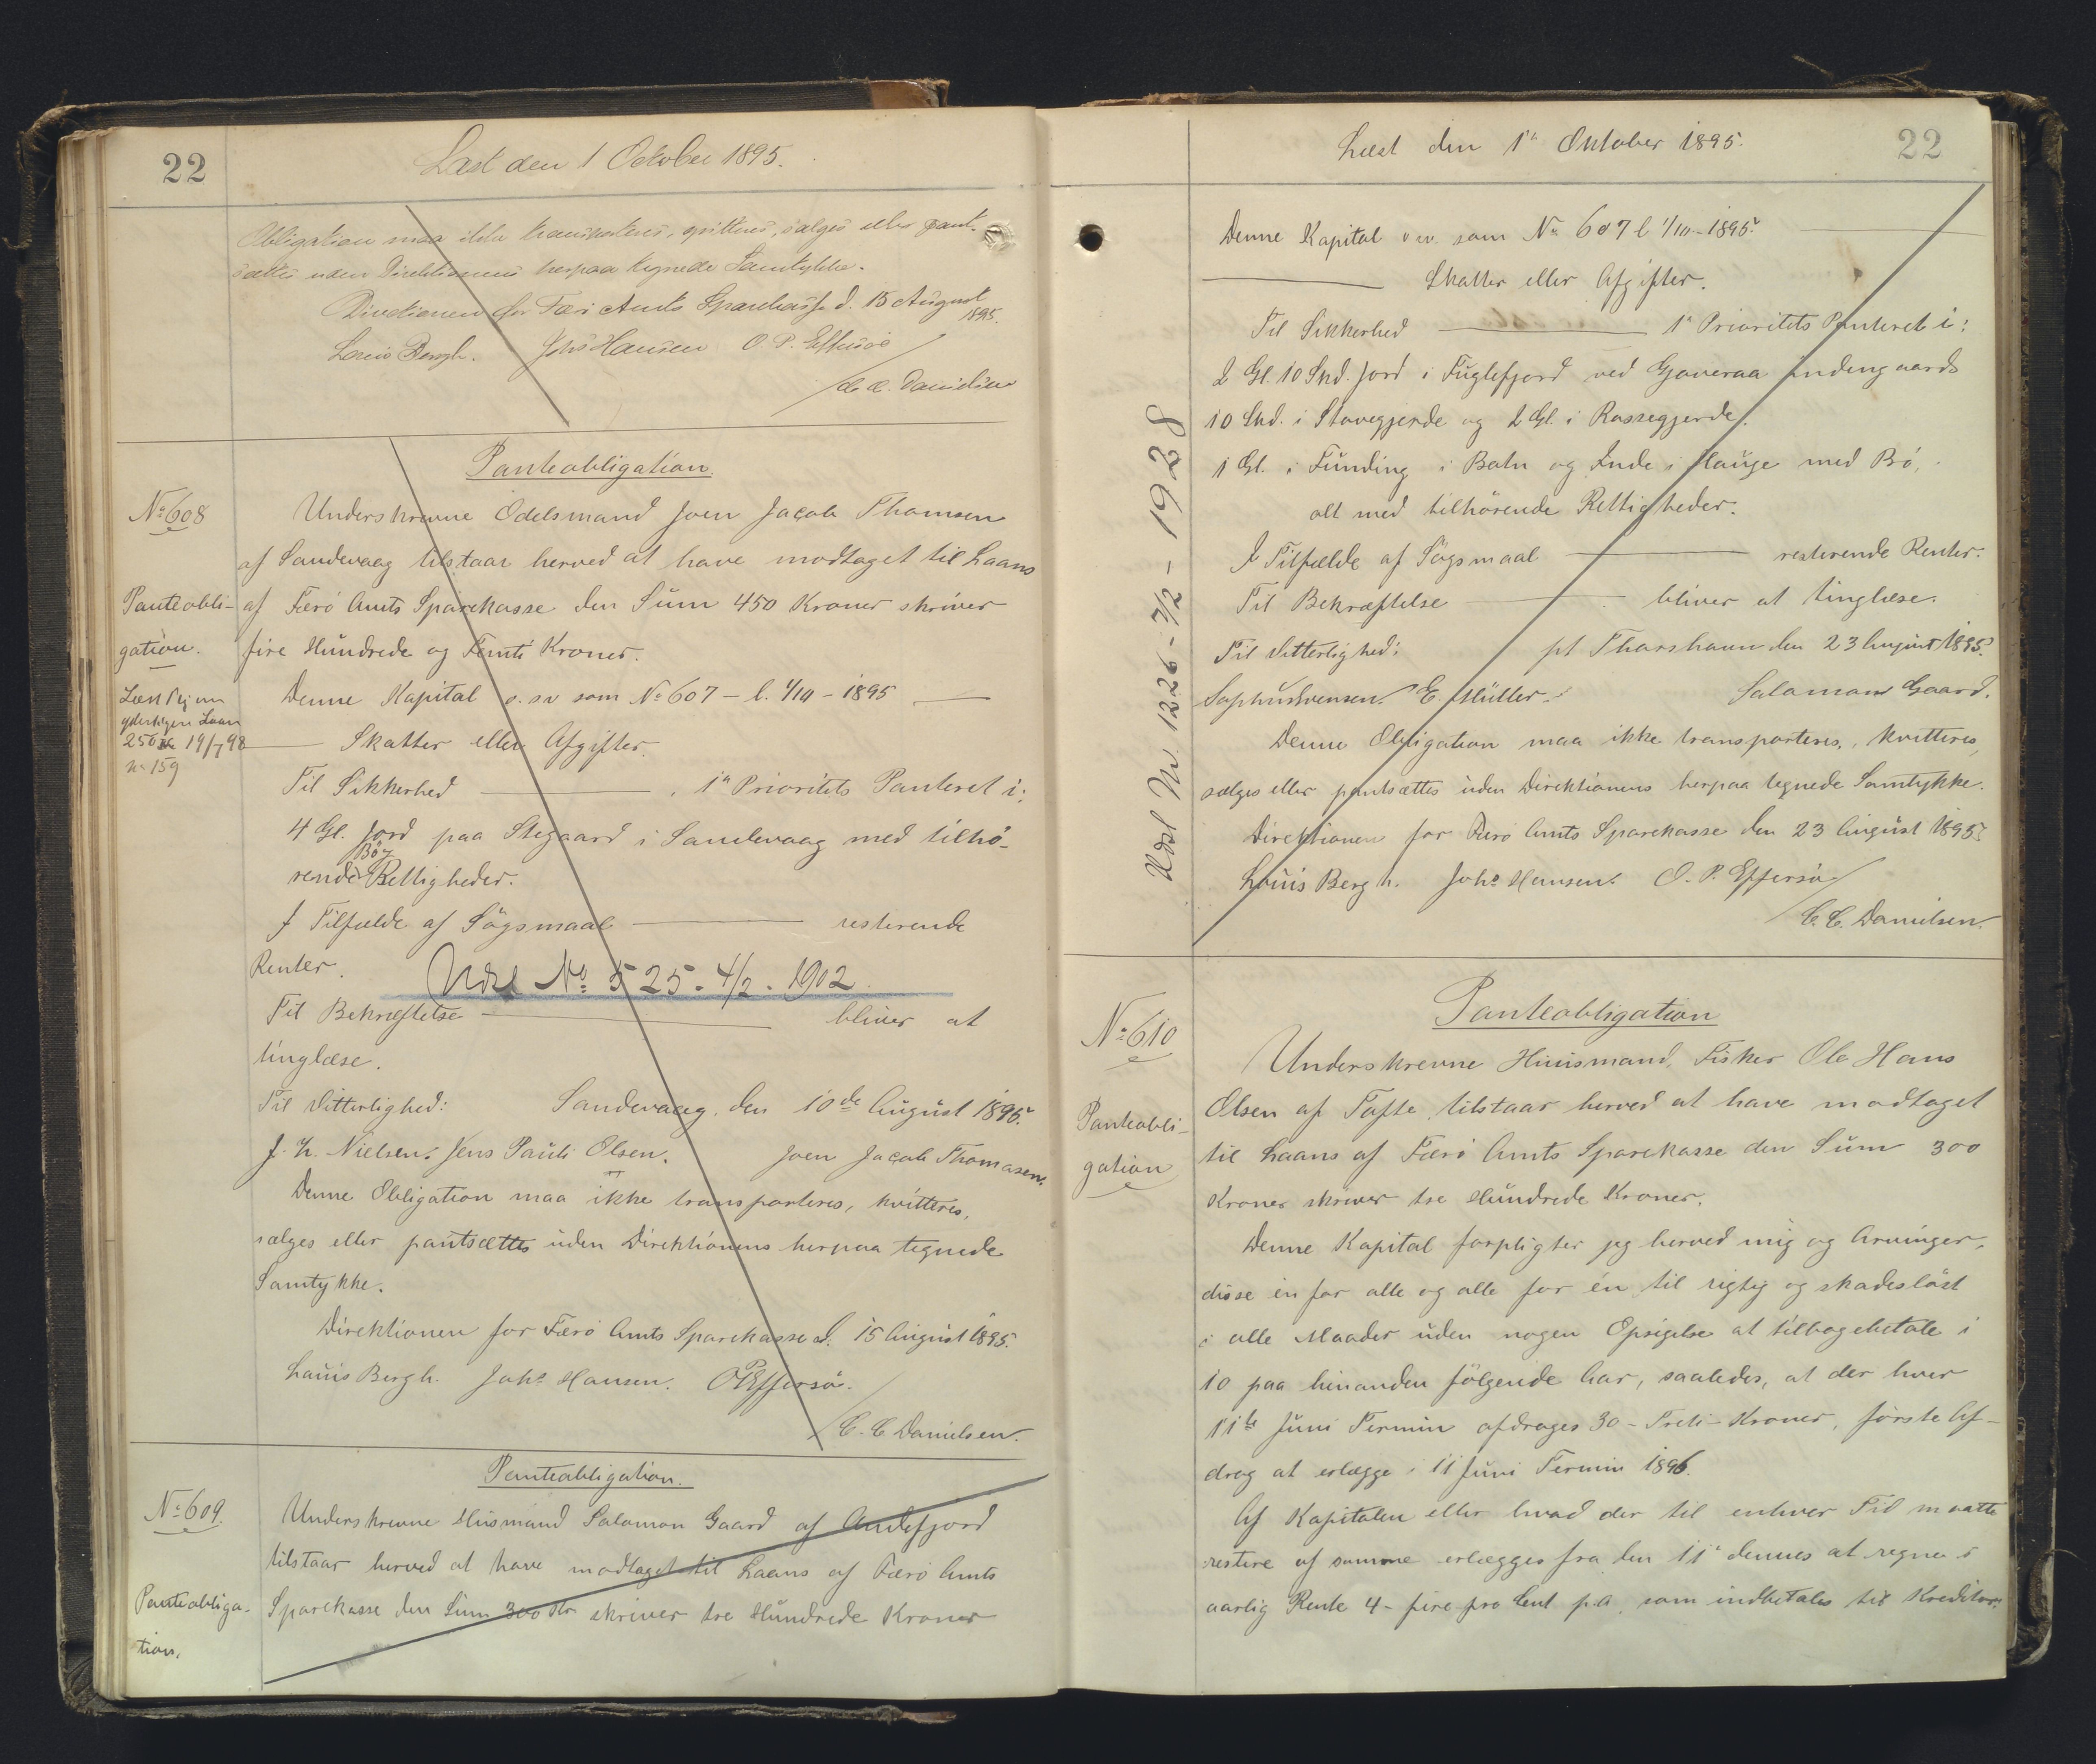 22
Læst den 1 October 1895.
Obligation maa ikke transporteres, qvitteres, sælges eller pant-
sættes uden Direktionens herpaa tegnede Samtykke.
Direktionen for Færø Amts Sparekasse d. 15 August 1895.
Louis Bergh. Johs Hansen O. P. Effersöe
/C. C. Danielsen
Panteobligation.
No 608
Panteobli-
gation.
Læst Pig om
yderligere Laan
250 Kr 19/7 98
No 159
Underskrevne Odelsmand Joen Jacob Thomsen
af Sandevaag tilstaar herved at have modtaget til Laans
af Færö Amts Sparekasse den Sum 450 Kroner skriver
fire Hundrede og Femti Kroner.
Denne Kapital o. s. v som No 607 - l. 1/10 - 1895
Skatter eller Afgifter.
Til Sikkerhed 1ste Prioritets Panteret i:
4 Gl. Jord paa Stegaard i Sandevaag med tilhö-
rende Böog Rettigheder.
I Tilfælde af Sögsmaal resterende
Renter.
Udsl No 525 - 4/2 - 1902.
Til Bekræftelse bliver at
tinglæse.
Til Vitterlighed: Sandevaag, den 10de August 1895.
J. H. Nielsen. Jens Pauli Olsen. Joen Jacob Thomasen.
Denne Obligation maa ikke transporteres, kvitteres,
sælges eller pantsættes uden Direktionens herpaa tegnede
Samtykke.
Direktionen for Færö Amts Sparekasse d. 15 August 1895.
Louis Bergh. Johs Hansen. OPEffersö.
/C. C Danielsen.
Panteobligation.
No 609.
Panteobliga-
tion.
Underskrevne Husmand Salomon Gaard af Andefjord
tilstaar herved at have modtaget til Laans af Færö Amts
Sparekasse den Sum 300 Kr skriver tre Hundrede Kroner
22
Læst den 1ste Oktober 1895.
Denne Kapital osv. som No 607 l 1/10 - 1895.
Skatter eller Afgifter.
Til Sikkerhed 1ste Prioritets Panteret i:
2 Gl. 10 Skd. Jord i Fuglefjord ved Gjøveraa indengaards
10 Skd. i Stovegjerde og 2 Gl. i Rossegjerde.
1 Gl. i Funding i Botn og Inde i Hauge med Bö,
alt med tilhörende Rettigheder.
I Tilfælde af Sögsmaal resterende Renter.
Til Bekræftelse bliver at tinglæse.
Til Vitterlighed: pt Thorshavn den 23 August 1895.
Sophus Svensen. E. Müller. Salomon Gaard.
Denne Obligation maa ikke transporteres, kvitteres,
sælges eller pantsættes uden Direktionens herpaa tegnede Samtykke.
Direktionen for Færö Amts Sparekasse den 23 August 1895.
Louis Bergh. Johs Hansen. O. P. Effersö
/C. C. Danielsen.
Udsl Nr. 1226 - 7/2 - 1928
Panteobligation
No 610
Panteobli-
gation
Underskrevne Huusmand, Fisker Ole Hans
Olsen af Tofte, tilstaar herved at have modtaget
til Laans af Færö Amts Sparekasse den Sum 300
Kroner skriver tre Hundrede Kroner.
Denne Kapital forpligter jeg herved mig og Arvinger,
disse en for alle og alle for én til rigtig og skadeslöst
i alle Maader uden nogen Opsigelse at tilbagebetale i
10 paa hinanden fölgende Aar, saaledes, at der hver
11te Juni Termin afdrages 30 - Treti - Kroner, förste Af-
drag at erlægge i 11 Juni Termin 1896.
Af Kapitalen eller hvad der til enhver Tid maatte
restere af samme erlægges fra den 11te dennes at regne i
aarlig Rente 4 - fire pro Cent p. a. som indbetales til Kreditor.